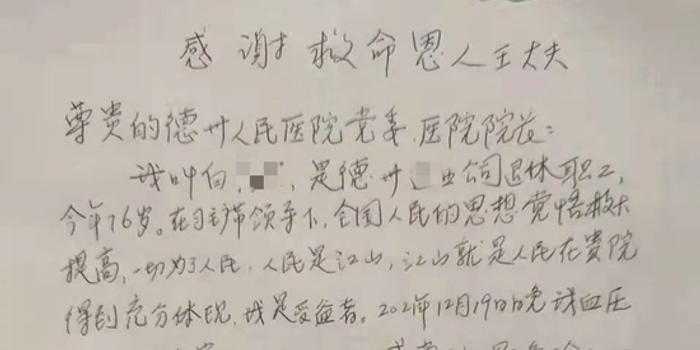 感谢救命恩人王大夫
尊贵的德州人民医院党委、医院院长:
我叫白,是德州业公司退休职工,
今年76岁。在习主席领导下,全国人民的思想觉悟极大
提高,一切为了人民,人民是江山,江山就是人民在贵院
得到充分体现,我是受益者。2021年12月19日晚我血压